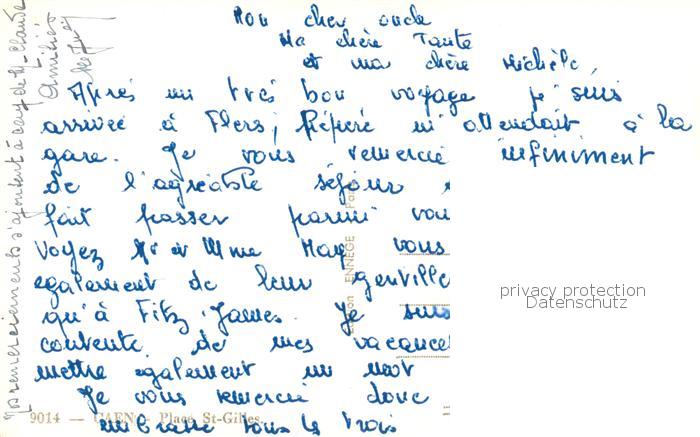 Mon cher oncle
Ma chère Tante
et ma chère Michèle,
Après un très bon voyage je suis
arrivée à Flers, Pépéré m'attendait à la
gare. Je vous remercie infiniment
de l'agréable séjour
fait passer parmi vou
Voyez Mr et Mme vous
egalement de leur gentille
qu'à Fitz-James. Je suis
contente de mes vacance
mettre egalement un mot
Je vous remercie donc
embrasse tous les trois
9014 — CAEN - Place St-Gilles.
remerciements s'ajoutent à ceux de Claude
Amitiés
privacy protection
Datenschutz